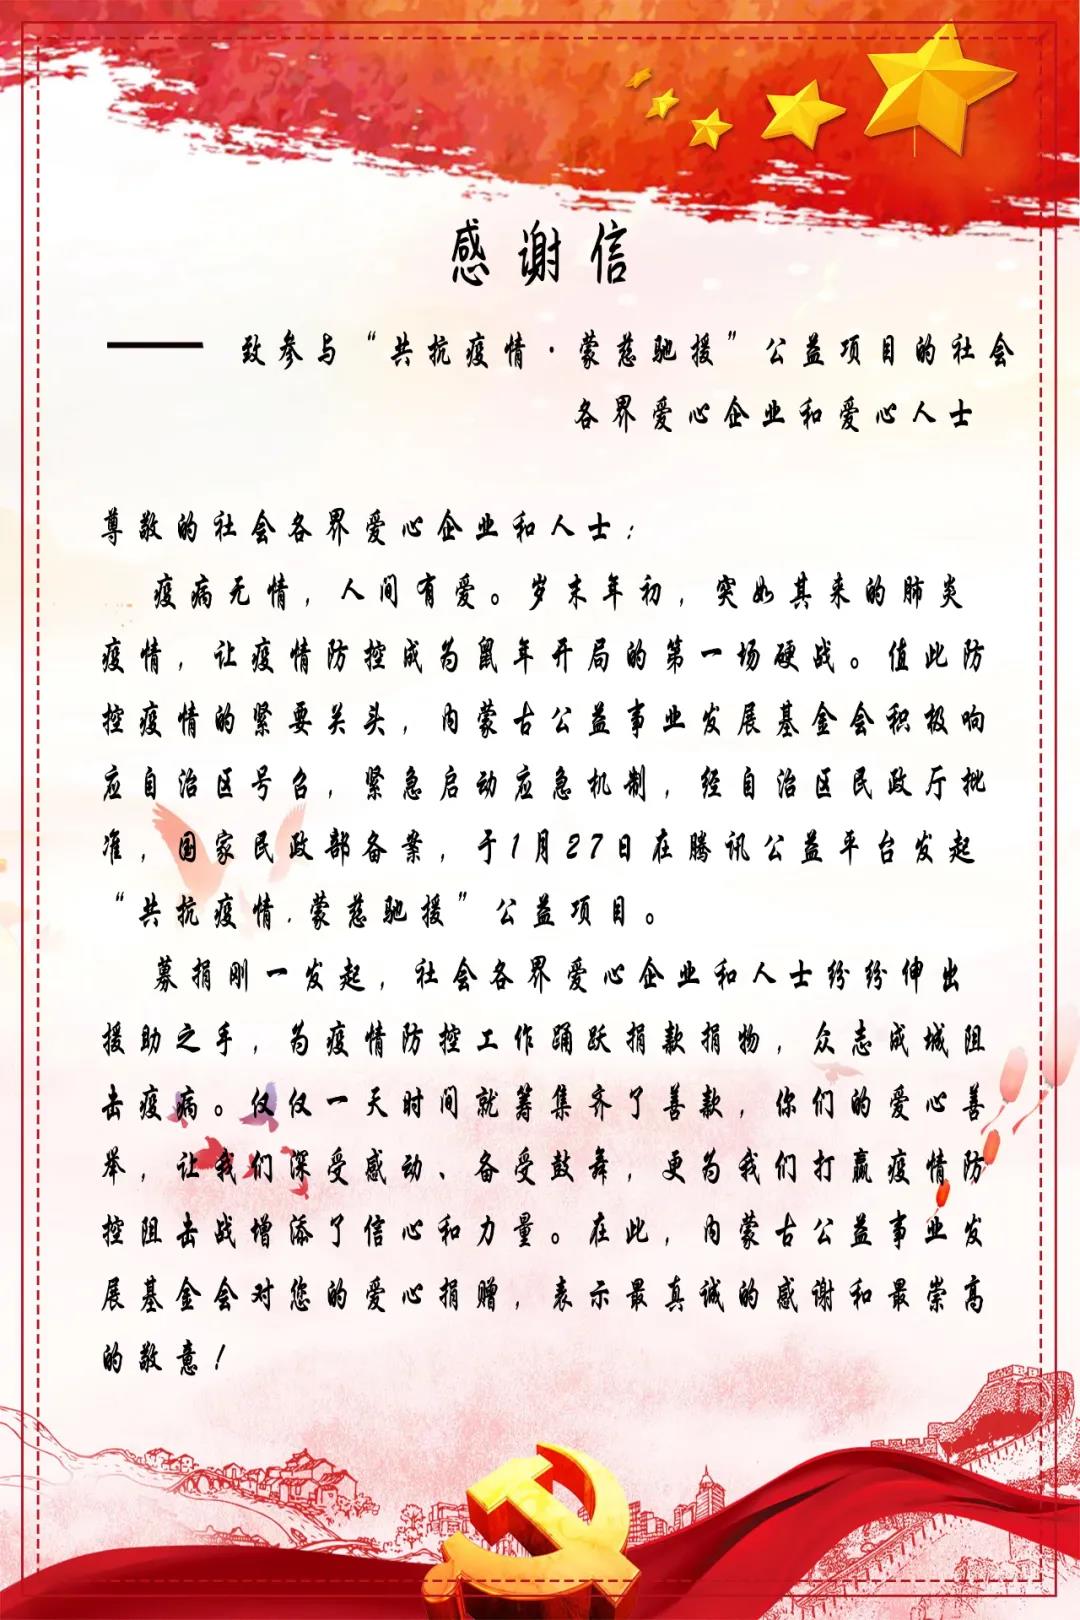 感谢信
—— 致参与“共抗疫情·蒙慈驰援”公益项目的社会
各界爱心企业和爱心人士
尊敬的社会各界爱心企业和人士：
疫病无情，人间有爱。岁末年初，突如其来的肺炎
疫情，让疫情防控成为鼠年开局的第一场硬战。值此防
控疫情的紧要关头，内蒙古公益事业发展基金会积极响
应自治区号召，紧急启动应急机制，经自治区民政厅批
准，国家民政部备案，于1月27日在腾讯公益平台发起
“共抗疫情.蒙慈驰援”公益项目。
募捐刚一发起，社会各界爱心企业和人士纷纷伸出
援助之手，为疫情防控工作踊跃捐款捐物，众志成城阻
击疫病。仅仅一天时间就筹集齐了善款，你们的爱心善
举，让我们深受感动、备受鼓舞，更为我们打赢疫情防
控阻击战增添了信心和力量。在此，内蒙古公益事业发
展基金会对您的爱心捐赠，表示最真诚的感谢和最崇高
的敬意！